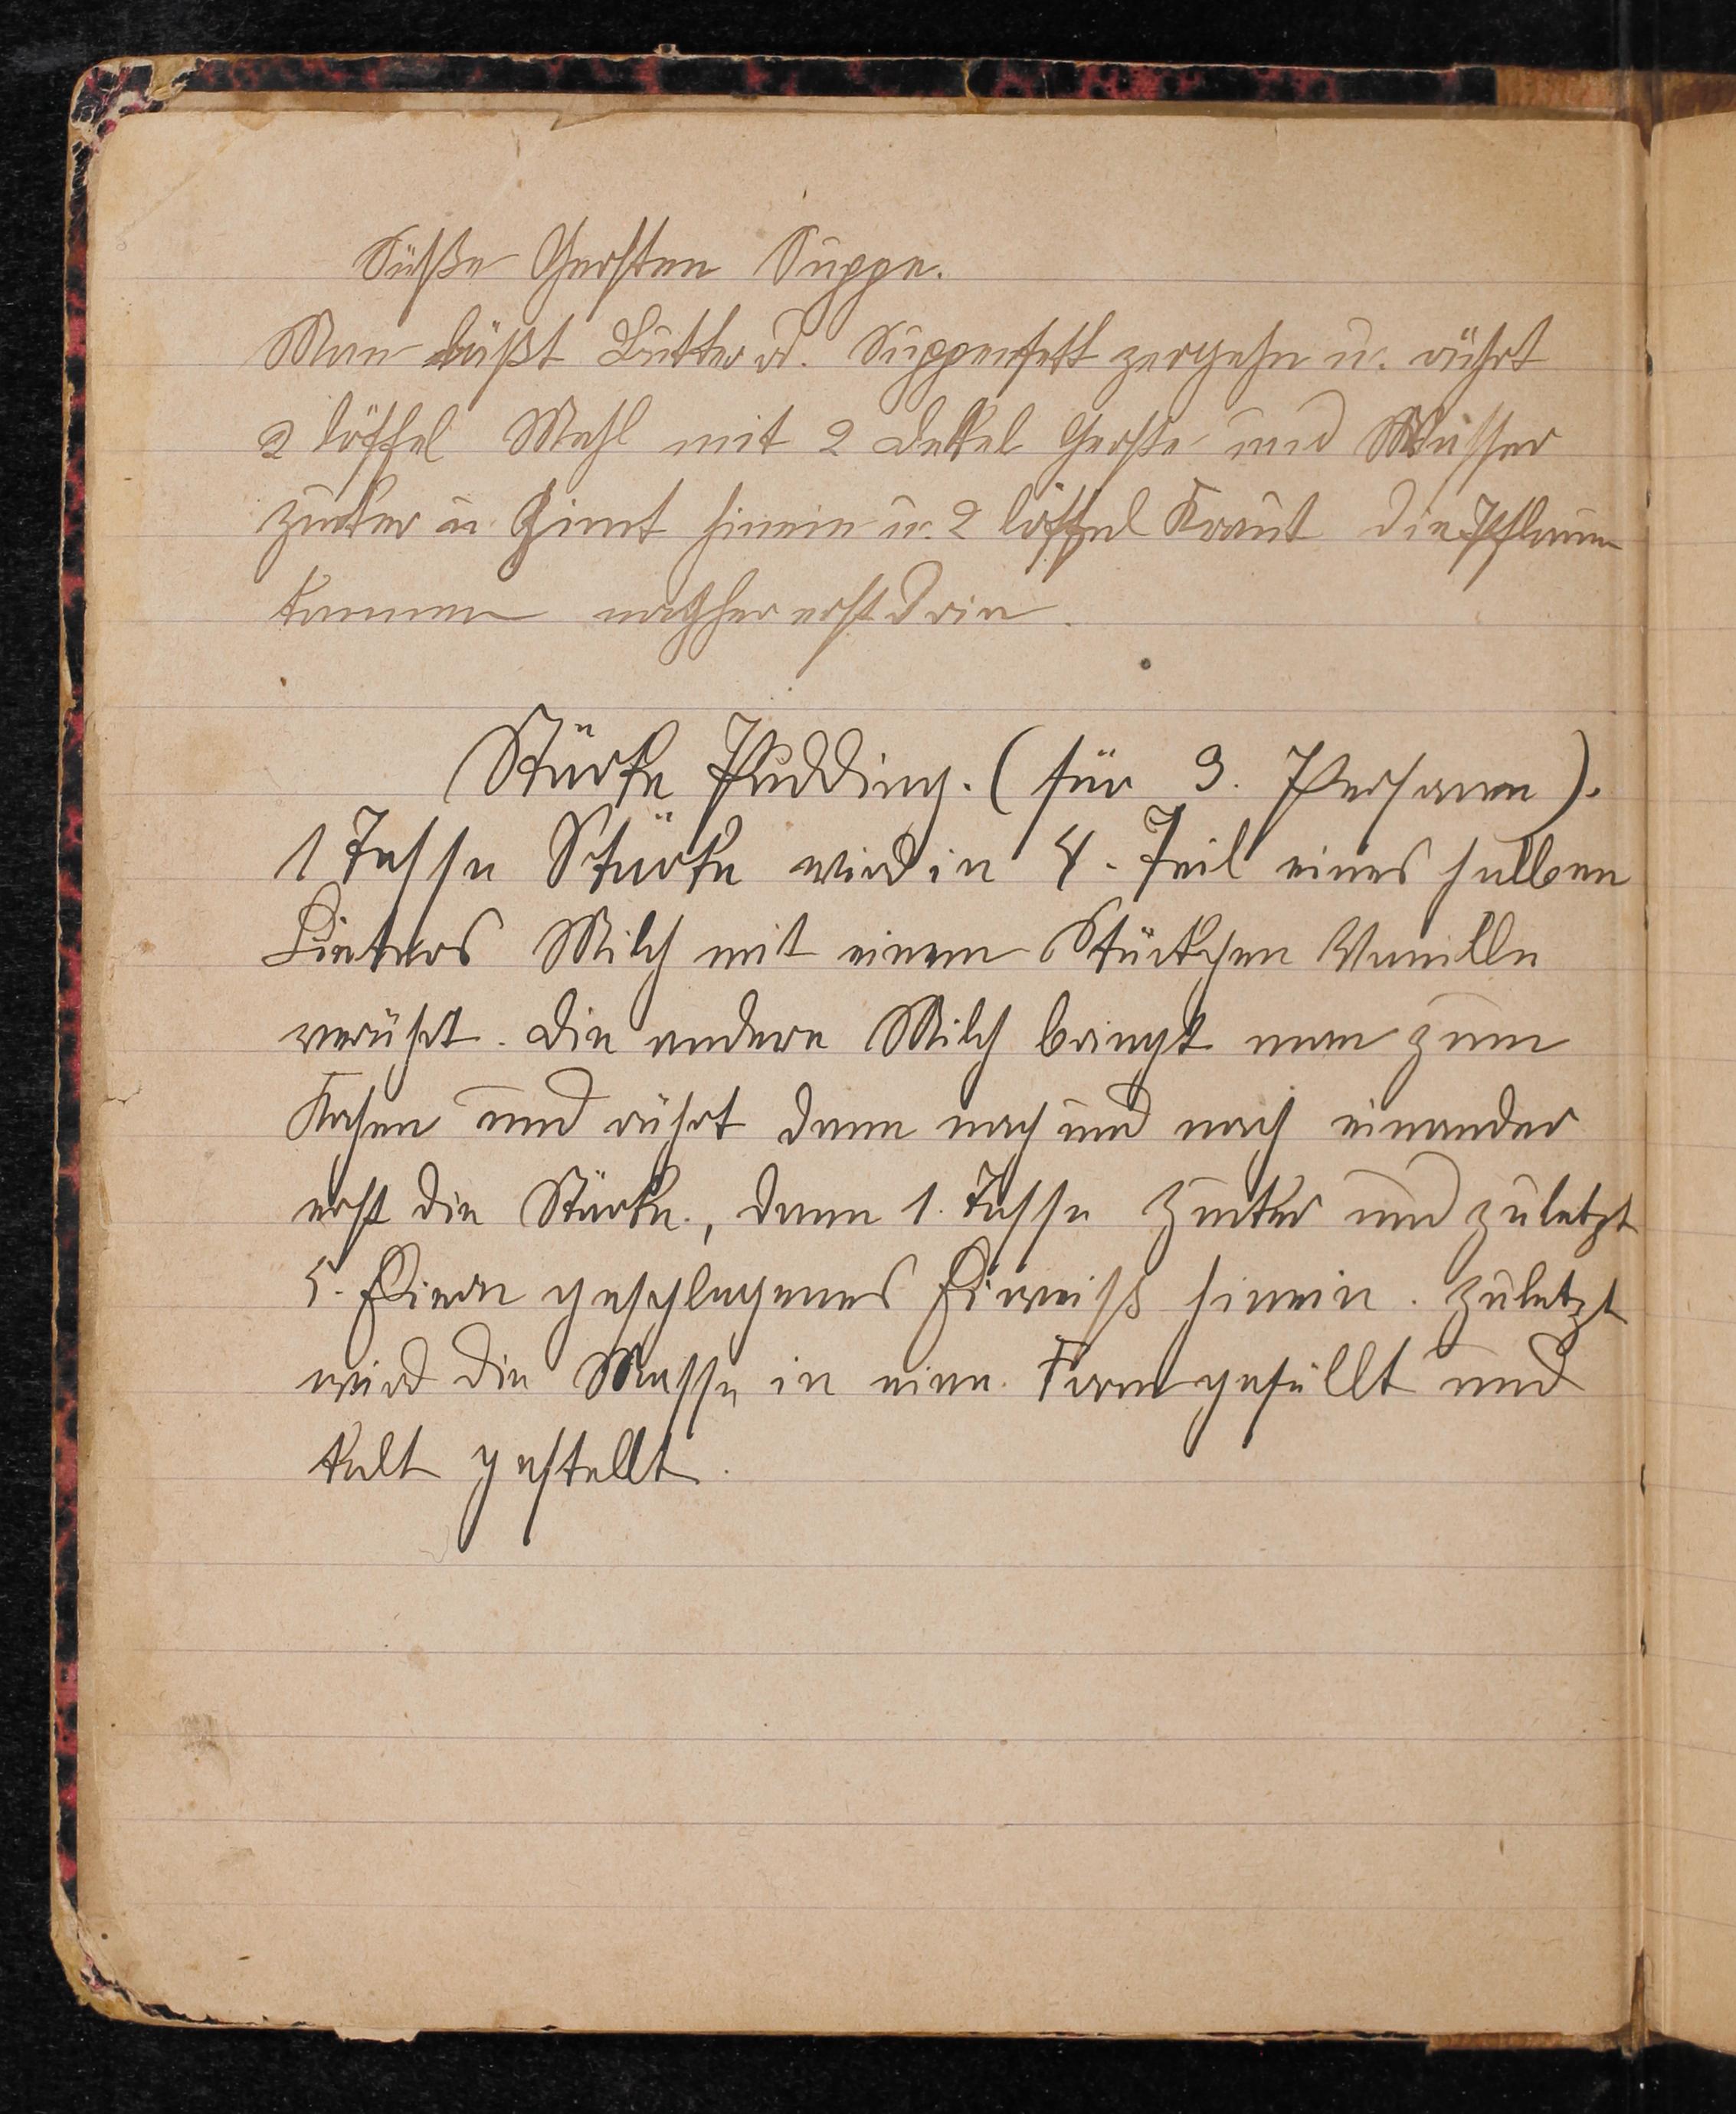 Süße Gersten Suppe.
Man läßt Butter od. Suppenfett zergehn u. rührt
2 löffel Mehl mit 2 Dekel Gerste und Wasser
Zucker u Zimt hinein u. 2 löffel Kraut die Pflaum
kommen nachher erst drin.
Stärke Pudding. (für 3. Personen).
1 Tasse Stärke wird in 4. Teil eines halben
Lieters Milch mit einem Stückchen Vanille
verührt. Die andere Milch bringt man zum
Kochen und rührt dann nach und nach einander
erst die Stärke., dann 1. Tasse Zucker und zuletzt
5. Eiern geschlagenes Eiweiß hinein. Zuletzt
wird die Masse in eine Form gefüllt und
kalt gestellt.